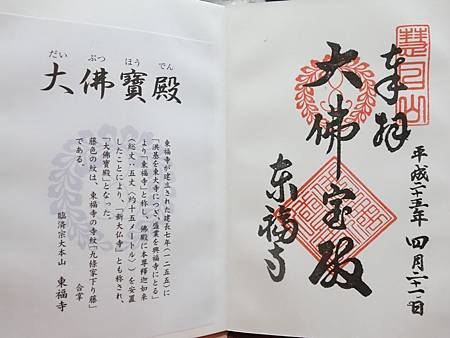 だい ぶつ ほう でん
大佛寶殿
東福寺が建立された建長七年(一二五五)に
「洪基を東大寺につぎ、盛業を興福寺にとる」
より「東福寺」と称し、佛殿に本尊釋迦如来
(総丈:五丈(約十五メートル))を安置
したことにより、「新大仏寺」とも称され、
「大佛寶殿」となった。
藤色の紋は、東福寺の寺紋「九條家下り藤」
である。
合掌
臨済宗大本山 東福寺
奉拝
平成二十五年四月二十一日
大佛宝殿
東福寺
慧日山